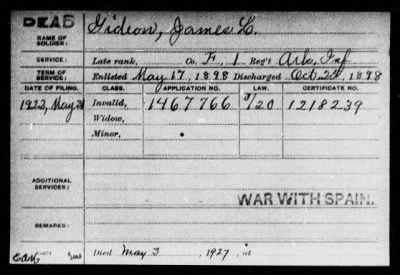 DEAD
Gideon, James L.
NAME OF SOLDIER:
SERVICE: Late rank, Co. F, 1 Reg't Ark. Inf.
TERM OF SERVICE: Enlisted May 17, 1898 Discharged Oct. 25, 1898
DATE OF FILING. CLASS. APPLICATION NO. LAW. CERTIFICATE NO.
1922, May Invalid, 1467766 1218239
Widow,
Minor,
ADDITIONAL SERVICES:
WAR WITH SPAIN.
REMARKS:
Died May 3, 1927, at